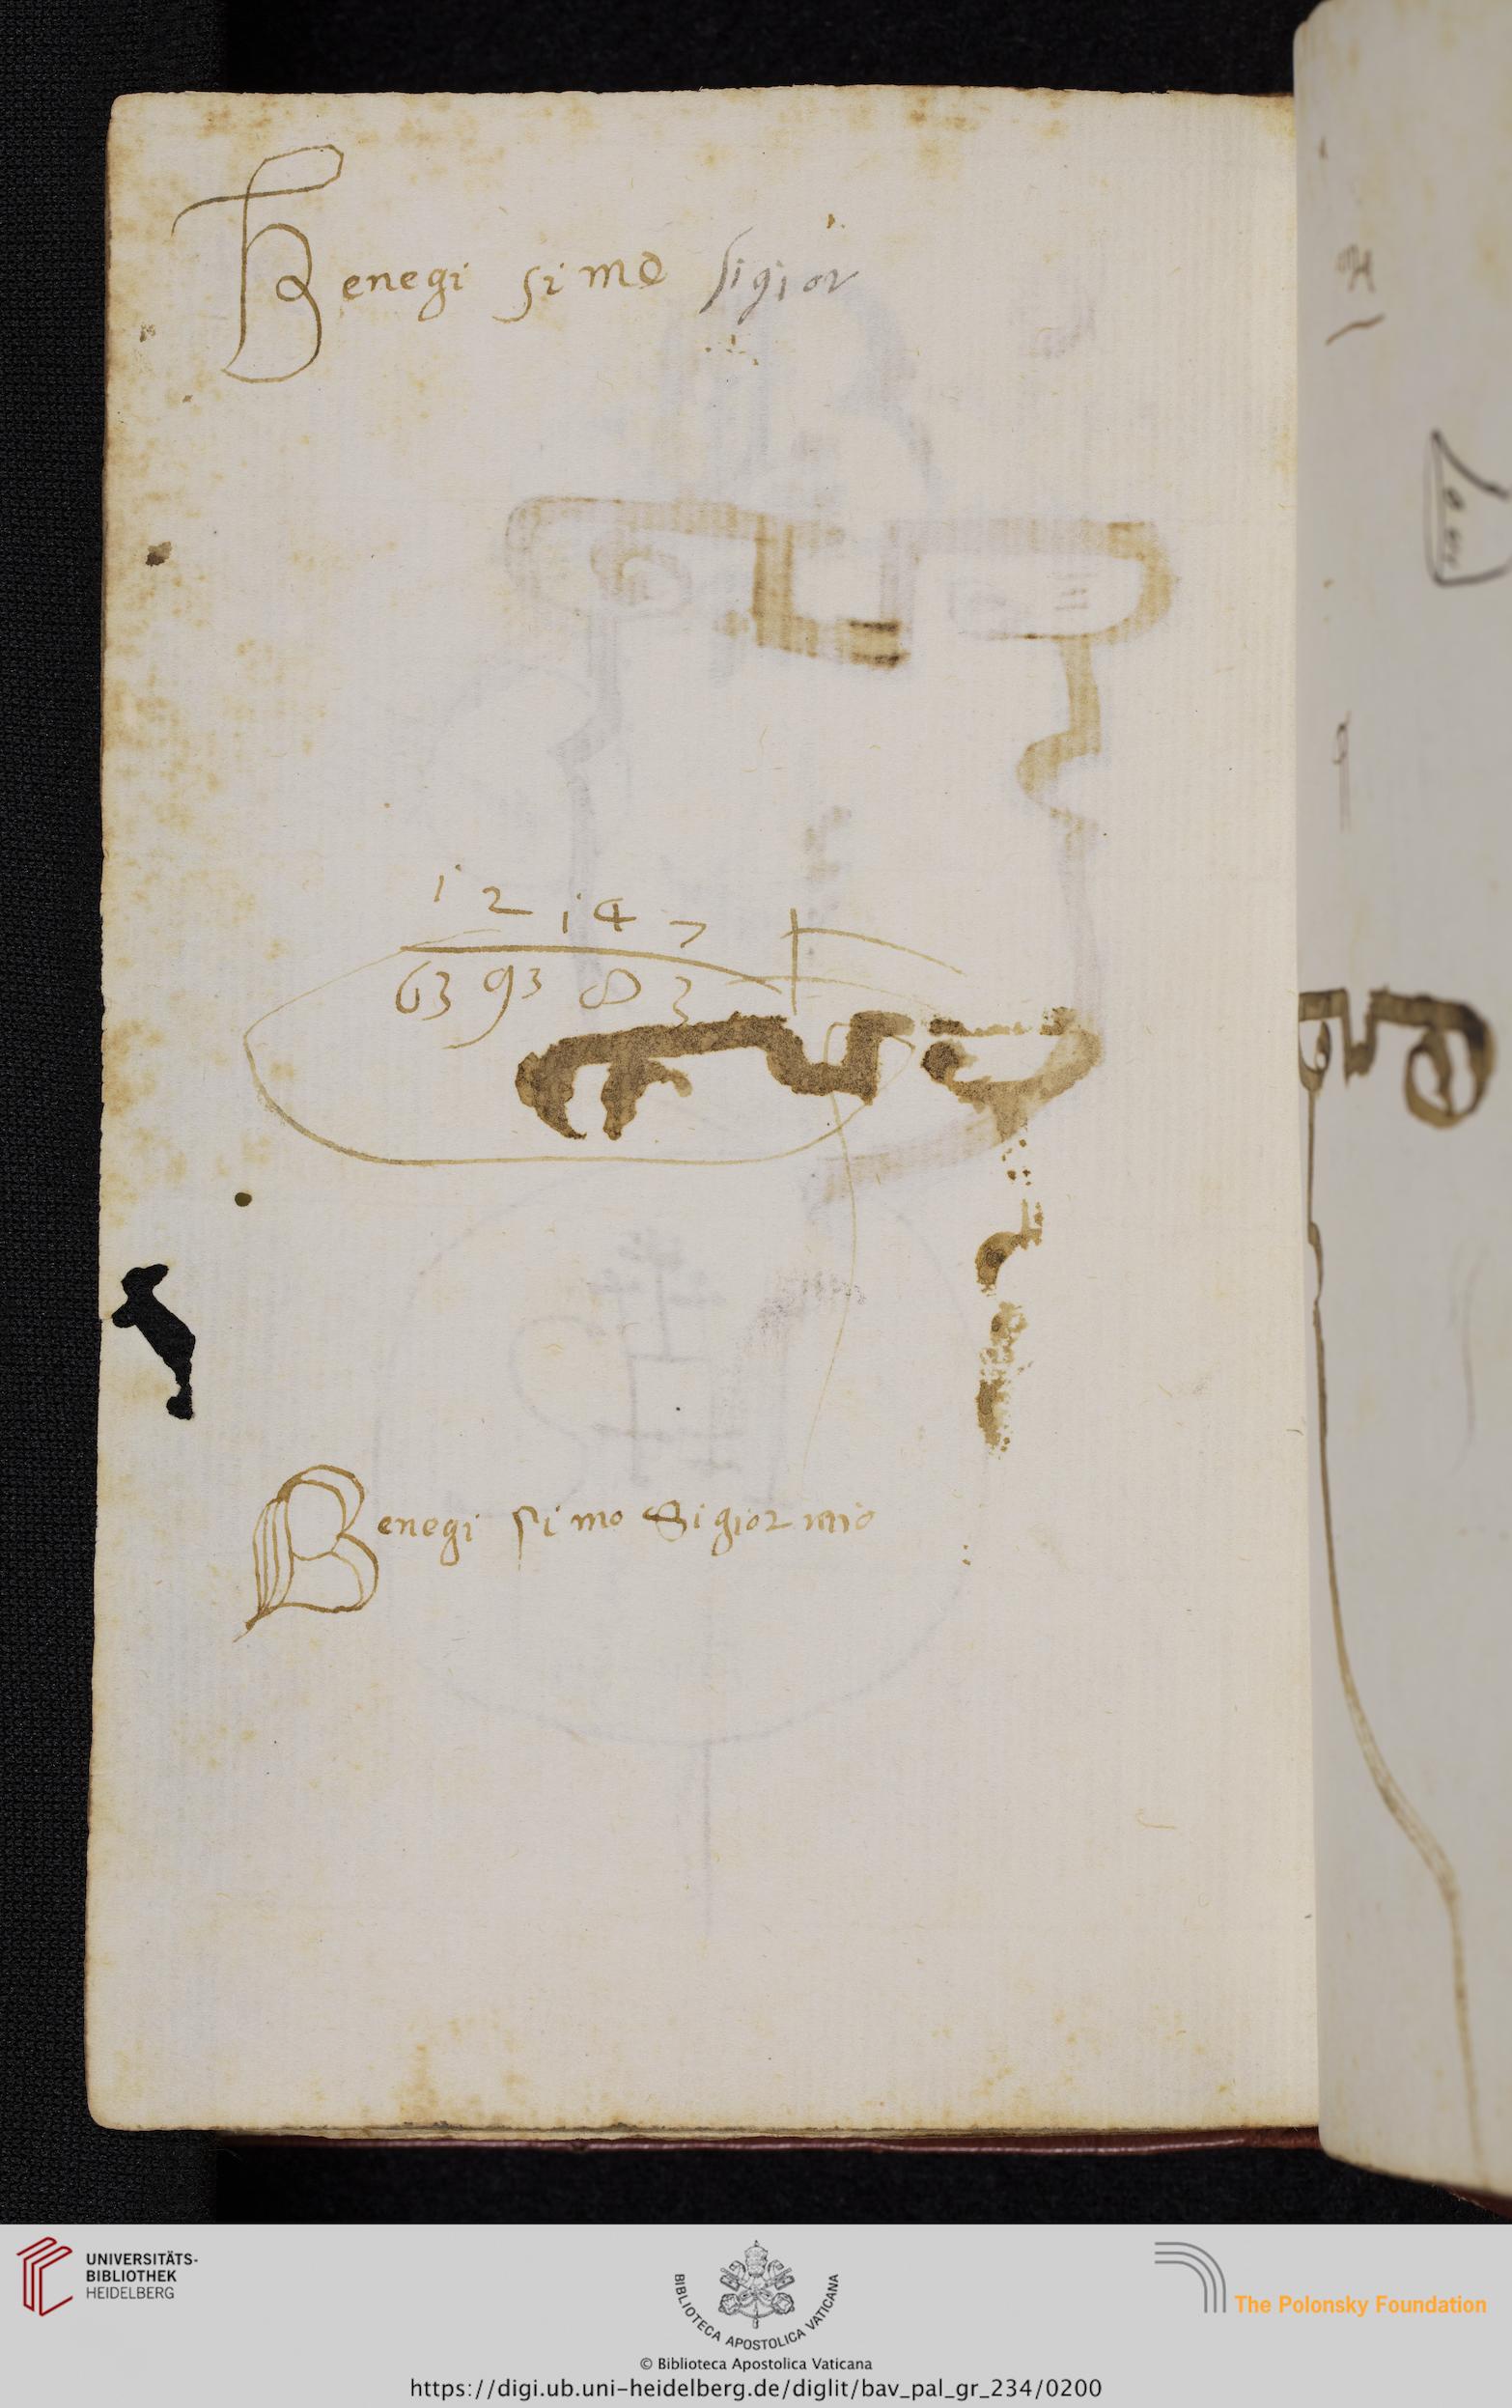 Benegi simo sigior
1 2 1 4 7
63 93 8 3
Benegi simo Sigior mio
UNIVERSITÄTS-
BIBLIOTHEK
HEIDELBERG
BIBLIOTECA APOSTOLICA VATICANA
The Polonsky Foundation
© Biblioteca Apostolica Vaticana
https://digi.ub.uni-heidelberg.de/diglit/bav_pal_gr_234/0200